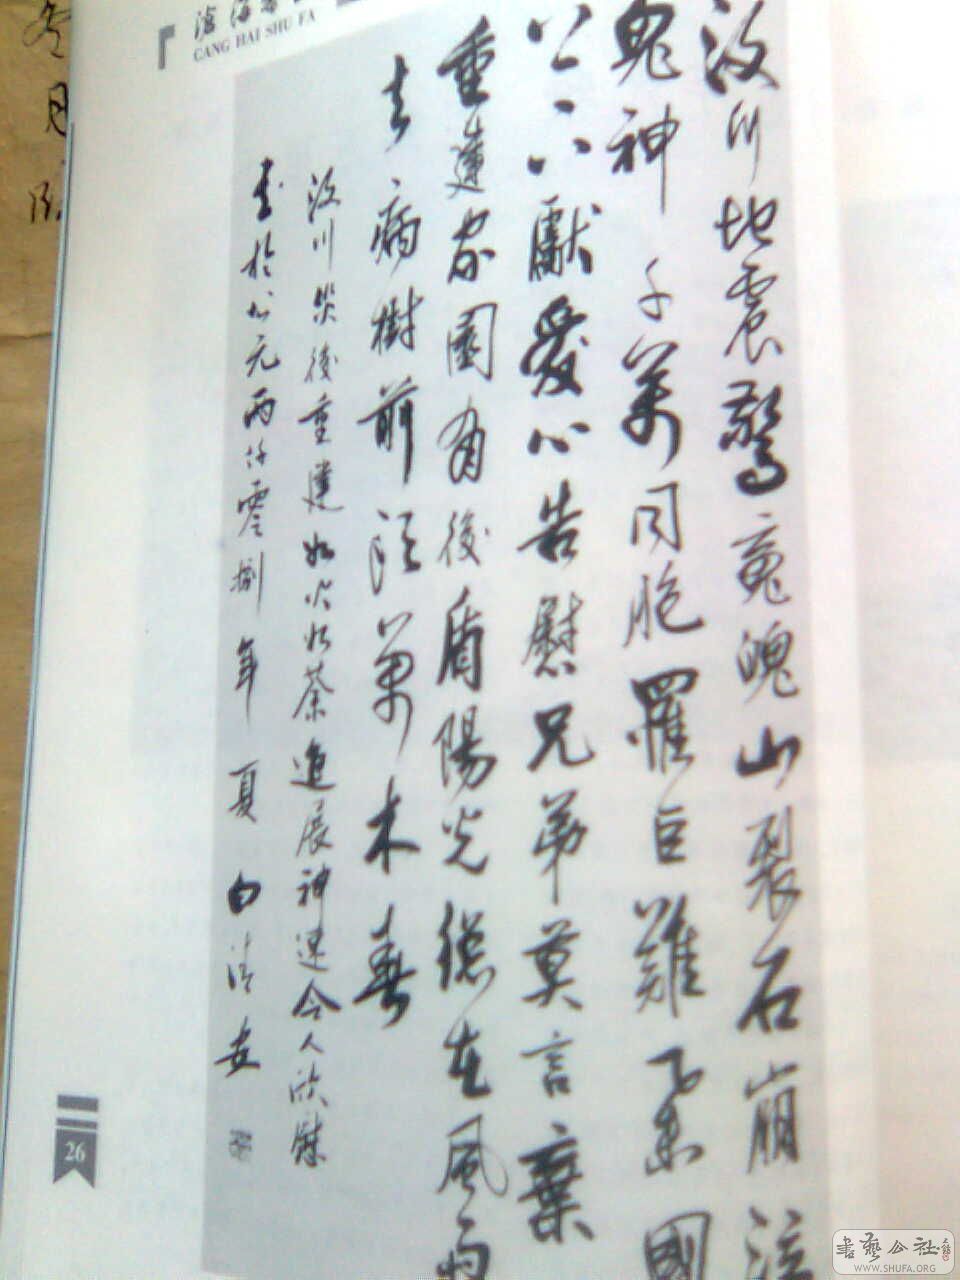 滄海書
CANG HAI SHU FA
汶川地震驚魂魄山裂石崩泣
鬼神千萬同胞罹巨難國
獻愛心告慰兄弟莫言棄
重建家園有後盾陽光總在風雨
去病樹前頭萬木春
汶川災後重建如火如荼進展神速令人欣慰
書於公元兩仟零捌年夏白清安
26
書藝公社
WWW.SHUFA.ORG